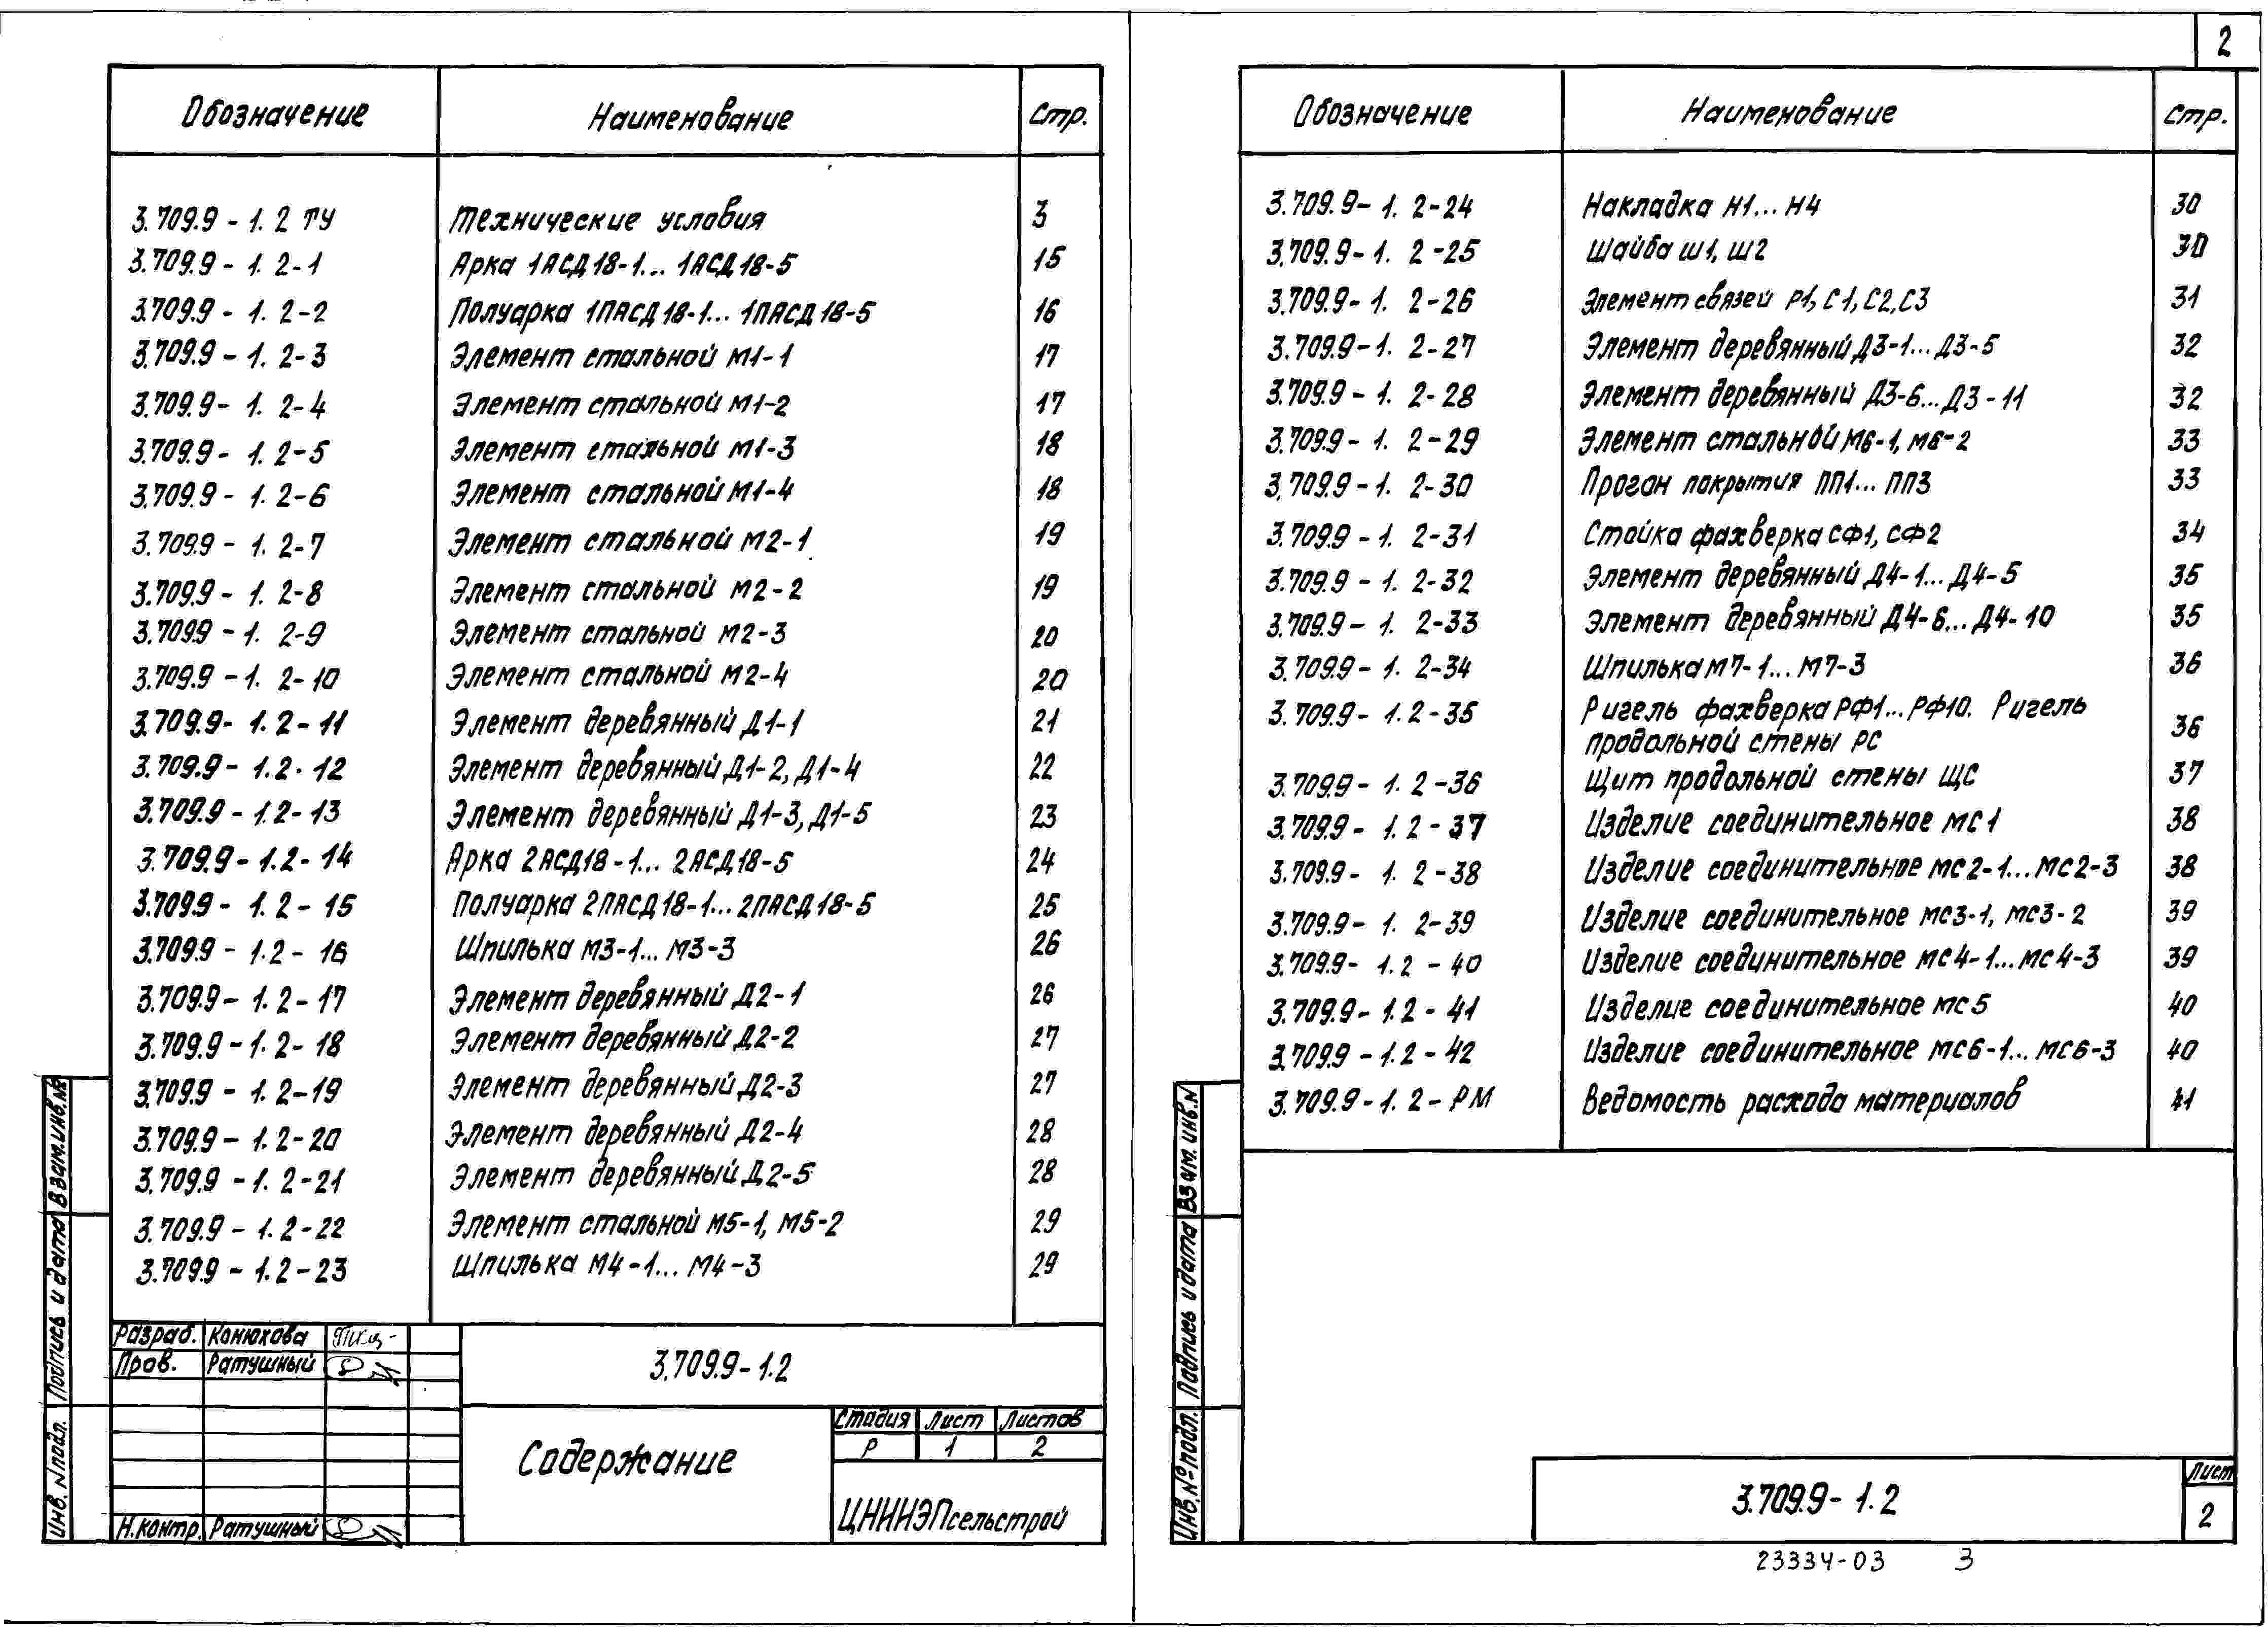 Обозначение Наименование Стр.
3.709.9-1.2 ТУ Технические условия 3
3.709.9-1.2-1 Арка 1АСД18-1...1АСД18-5 15
3.709.9-1.2-2 Полуарка 1ПАСД18-1...1ПАСД18-5 16
3.709.9-1.2-3 Элемент стальной М1-1 17
3.709.9-1.2-4 Элемент стальной М1-2 17
3.709.9-1.2-5 Элемент стальной М1-3 18
3.709.9-1.2-6 Элемент стальной М1-4 18
3.709.9-1.2-7 Элемент стальной М2-1 19
3.709.9-1.2-8 Элемент стальной М2-2 19
3.709.9-1.2-9 Элемент стальной М2-3 20
3.709.9-1.2-10 Элемент стальной М2-4 20
3.709.9-1.2-11 Элемент деревянный Д1-1 21
3.709.9-1.2-12 Элемент деревянный Д1-2, Д1-4 22
3.709.9-1.2-13 Элемент деревянный Д1-3, Д1-5 23
3.709.9-1.2-14 Арка 2АСД18-1...2АСД18-5 24
3.709.9-1.2-15 Полуарка 2ПАСД18-1...2ПАСД18-5 25
3.709.9-1.2-16 Шпилька М3-1...М3-3 26
3.709.9-1.2-17 Элемент деревянный Д2-1 26
3.709.9-1.2-18 Элемент деревянный Д2-2 27
3.709.9-1.2-19 Элемент деревянный Д2-3 27
3.709.9-1.2-20 Элемент деревянный Д2-4 28
3.709.9-1.2-21 Элемент деревянный Д2-5 28
3.709.9-1.2-22 Элемент стальной М5-1, М5-2 29
3.709.9-1.2-23 Шпилька М4-1...М4-3 29
Взам.инв.№
Подпись и дата
Инв. N подл.
Разраб. Конюхова
Пров. Ратушный
Н.контр. Ратушный
3.709.9-1.2
Содержание
Стадия Лист Листов
Р 1 2
ЦНИИЭПсельстрой
2
Обозначение Наименование Стр.
3.709.9-1.2-24 Накладка Н1...Н4 30
3.709.9-1.2-25 Шайба Ш1, Ш2 30
3.709.9-1.2-26 Элемент связей Р1, С1, С2, С3 31
3.709.9-1.2-27 Элемент деревянный Д3-1...Д3-5 32
3.709.9-1.2-28 Элемент деревянный Д3-6...Д3-11 32
3.709.9-1.2-29 Элемент стальной М6-1, М6-2 33
3.709.9-1.2-30 Прогон покрытия ПП1...ПП3 33
3.709.9-1.2-31 Стойка фахверка СФ1, СФ2 34
3.709.9-1.2-32 Элемент деревянный Д4-1...Д4-5 35
3.709.9-1.2-33 Элемент деревянный Д4-6...Д4-10 35
3.709.9-1.2-34 Шпилька М7-1...М7-3 36
3.709.9-1.2-35 Ригель фахверка РФ1...РФ10. Ригель
продольной стены РС 36
3.709.9-1.2-36 Щит продольной стены ЩС 37
3.709.9-1.2-37 Изделие соединительное МС1 38
3.709.9-1.2-38 Изделие соединительное МС2-1...МС2-3 38
3.709.9-1.2-39 Изделие соединительное МС3-1, МС3-2 39
3.709.9-1.2-40 Изделие соединительное МС4-1...МС4-3 39
3.709.9-1.2-41 Изделие соединительное МС5 40
3.709.9-1.2-42 Изделие соединительное МС6-1...МС6-3 40
3.709.9-1.2-РМ Ведомость расхода материалов 41
Взам. инв.N
Подпись и дата
Инв.N° подл.
3.709.9-1.2
Лист
2
23334-03 3